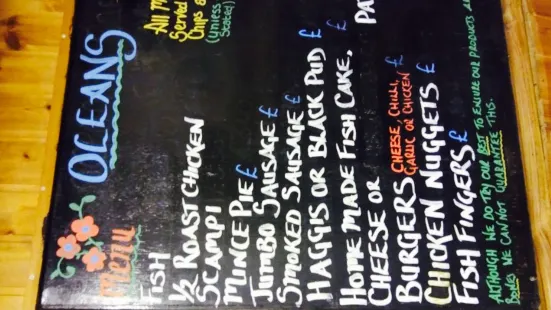 OCEANS
menu
All M
Served
Chips &
(unless
Stated)
FISH
½ ROAST CHICKEN
SCAMPI
MINCE PIE £
JUMBO SAUSAGE £
SMOKED SAUSAGE £
HAGGIS OR BLACK PUD £
HOME MADE FISH CAKE, £
CHEESE OR PA
BURGERS CHEESE, CHILLI,
GARLIC OR CHICKEN £
CHICKEN NUGGETS £
FISH FINGERS £
ALTHOUGH WE DO TRY OUR BEST TO ENSURE OUR PRODUCTS
WE CAN NOT GUARANTEE THIS.